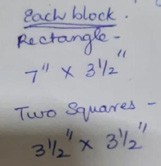 Each block.
Rectangle -
7" x 3 1/2"
Two Squares -
3 1/2" x 3 1/2"